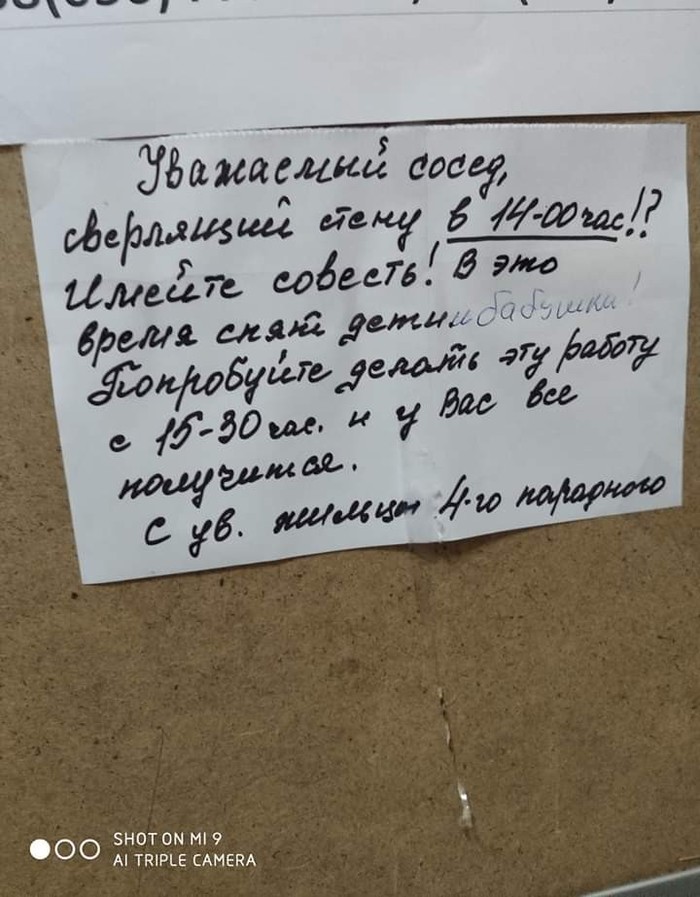 Уважаемый сосед,
сверлящий стену в 14-00 час!?
Имейте совесть! В это
время спят дети и бабушки!
Попробуйте делать эту работу
с 15-30 час. и у Вас все
получится.
С ув. жильцы 4-го парадного
SHOT ON MI 9
AI TRIPLE CAMERA